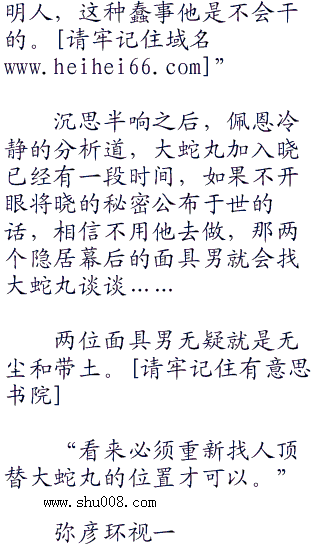 明人，这种蠢事他是不会干
的。[请牢记住域名
www.heihei66.com]”
沉思半响之后，佩恩冷
静的分析道，大蛇丸加入晓
已经有一段时间，如果不开
眼将晓的秘密公布于世的
话，相信不用他去做，那两
个隐居幕后的面具男就会找
大蛇丸谈谈……
两位面具男无疑就是无
尘和带土。[请牢记住有意思
书院]
“看来必须重新找人顶
替大蛇丸的位置才可以。”
www.shu008.com
弥彦环视一